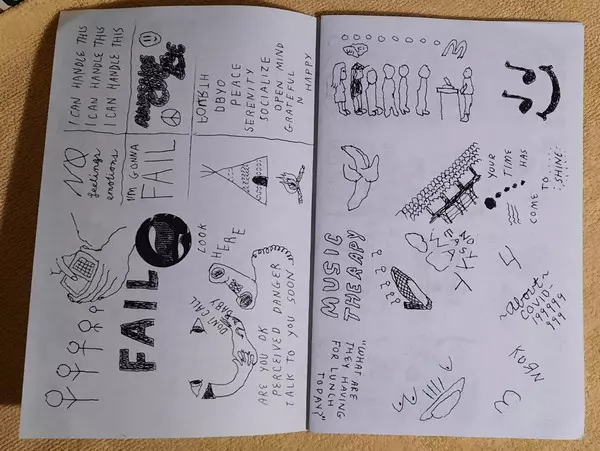 I CAN HANDLE THIS
I CAN HANDLE THIS
I CAN HANDLE THIS
NO
feelings
emotions
I'M GONNA
FAIL
DBYO
PEACE
SERENITY
SOCIALIZE
OPEN MIND
GRATEFUL
N HAPPY
FAIL
LOOK
HERE
DON'T CALL
BABY
ARE YOU OK
PERCEIVED DANGER
TALK TO YOU SOON
MUSIC
THERAPY
"WHAT ARE
THEY HAVING
FOR LUNCH
TODAY?"
YOUR
TIME
HAS
COME TO
SHINE
NOSTY
about
COVID-
199999
999
KORN